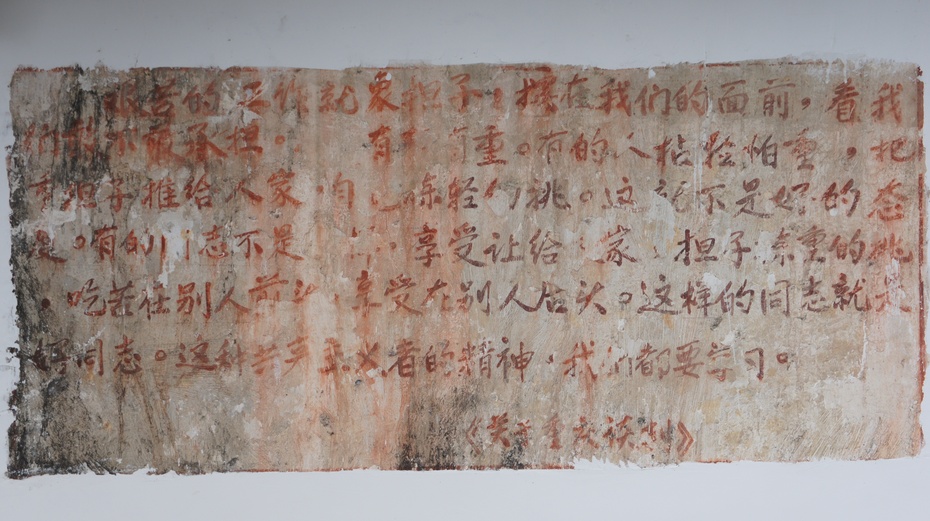 艰苦的工作就象担子,摆在我们的面前,看我
们敢不敢承担。担 有 重。有的人拈轻怕重,把
重担子推给人家,自己拣轻的挑。这就不是好的态
度。有的同志不是 ,享受让给人家,担子拣重的挑
,吃苦在别人前头,享受在别人后头。这样的同志就是
好同志。这种共产主义者的精神,我们都要学习。
《关于重庆谈判》